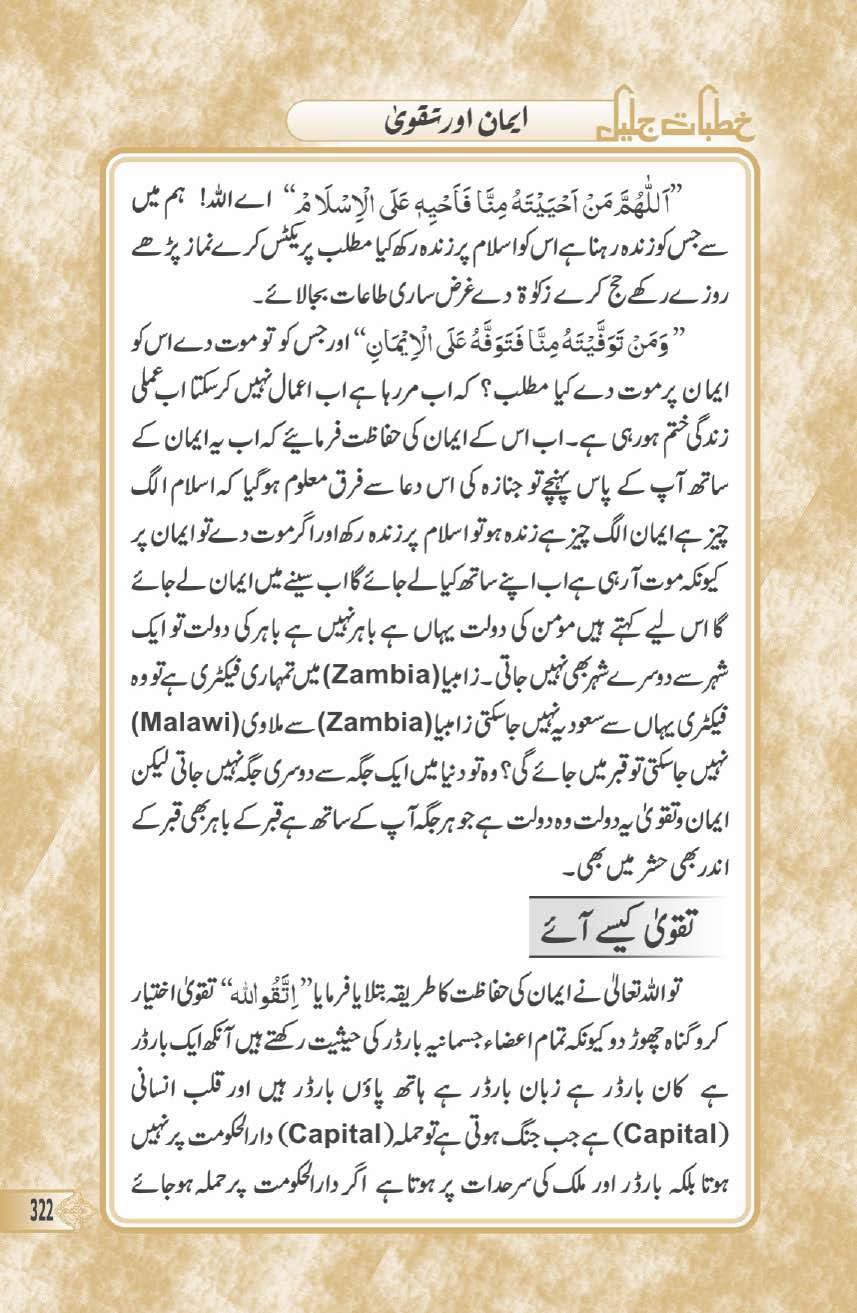 خطبات جلیل
ایمان اور تقویٰ
”اَللّٰهُمَّ مَنْ اَحْيَيْتَهُ مِنَّا فَاَحْيِهٖ عَلَى الْاِسْلَامْ“ اے اللہ! ہم میں
سے جس کو زندہ رہنا ہے اس کو اسلام پر زندہ رکھ کیا مطلب پریکٹس کرے نماز پڑھے
روزے رکھے حج کرے زکوٰۃ دے غرض ساری طاعات بجالائے۔
”وَمَنْ تَوَفَّيْتَهُ مِنَّا فَتَوَفَّهُ عَلَى الْاِيْمَانِ“ اور جس کو تو موت دے اس کو
ایمان پر موت دے کیا مطلب؟ کہ اب مر رہا ہے اب اعمال نہیں کرسکتا اب عملی
زندگی ختم ہورہی ہے۔ اب اس کے ایمان کی حفاظت فرمایئے کہ اب یہ ایمان کے
ساتھ آپ کے پاس پہنچے تو جنازہ کی اس دعا سے فرق معلوم ہوگیا کہ اسلام الگ
چیز ہے ایمان الگ چیز ہے زندہ ہو تو اسلام پر زندہ رکھ اور اگر موت دے تو ایمان پر
کیونکہ موت آرہی ہے اب اپنے ساتھ کیا لے جائے گا اب سینے میں ایمان لے جائے
گا اس لیے کہتے ہیں مؤمن کی دولت یہاں ہے باہر نہیں ہے باہر کی دولت تو ایک
شہر سے دوسرے شہر بھی نہیں جاتی۔ زامبیا (Zambia) میں تمہاری فیکٹری ہے تو وہ
فیکٹری یہاں سے سعودیہ نہیں جاسکتی زامبیا (Zambia) سے ملاوی (Malawi)
نہیں جاسکتی تو قبر میں جائے گی؟ وہ تو دنیا میں ایک جگہ سے دوسری جگہ نہیں جاتی لیکن
ایمان و تقویٰ یہ دولت وہ دولت ہے جو ہر جگہ آپ کے ساتھ ہے قبر کے باہر بھی قبر کے
اندر بھی حشر میں بھی۔
تقویٰ کیسے آئے
تو اللہ تعالیٰ نے ایمان کی حفاظت کا طریقہ بتلایا فرمایا ”اِتَّقُوا الله“ تقویٰ اختیار
کرو گناہ چھوڑ دو کیونکہ تمام اعضاء جسمانیہ بارڈر کی حیثیت رکھتے ہیں آنکھ ایک بارڈر
ہے کان بارڈر ہے زبان بارڈر ہے ہاتھ پاؤں بارڈر ہیں اور قلب انسانی
(Capital) ہے جب جنگ ہوتی ہے تو حملہ (Capital) دارالحکومت پر نہیں
ہوتا بلکہ بارڈر اور ملک کی سرحدات پر ہوتا ہے اگر دارالحکومت پر حملہ ہوجائے
322